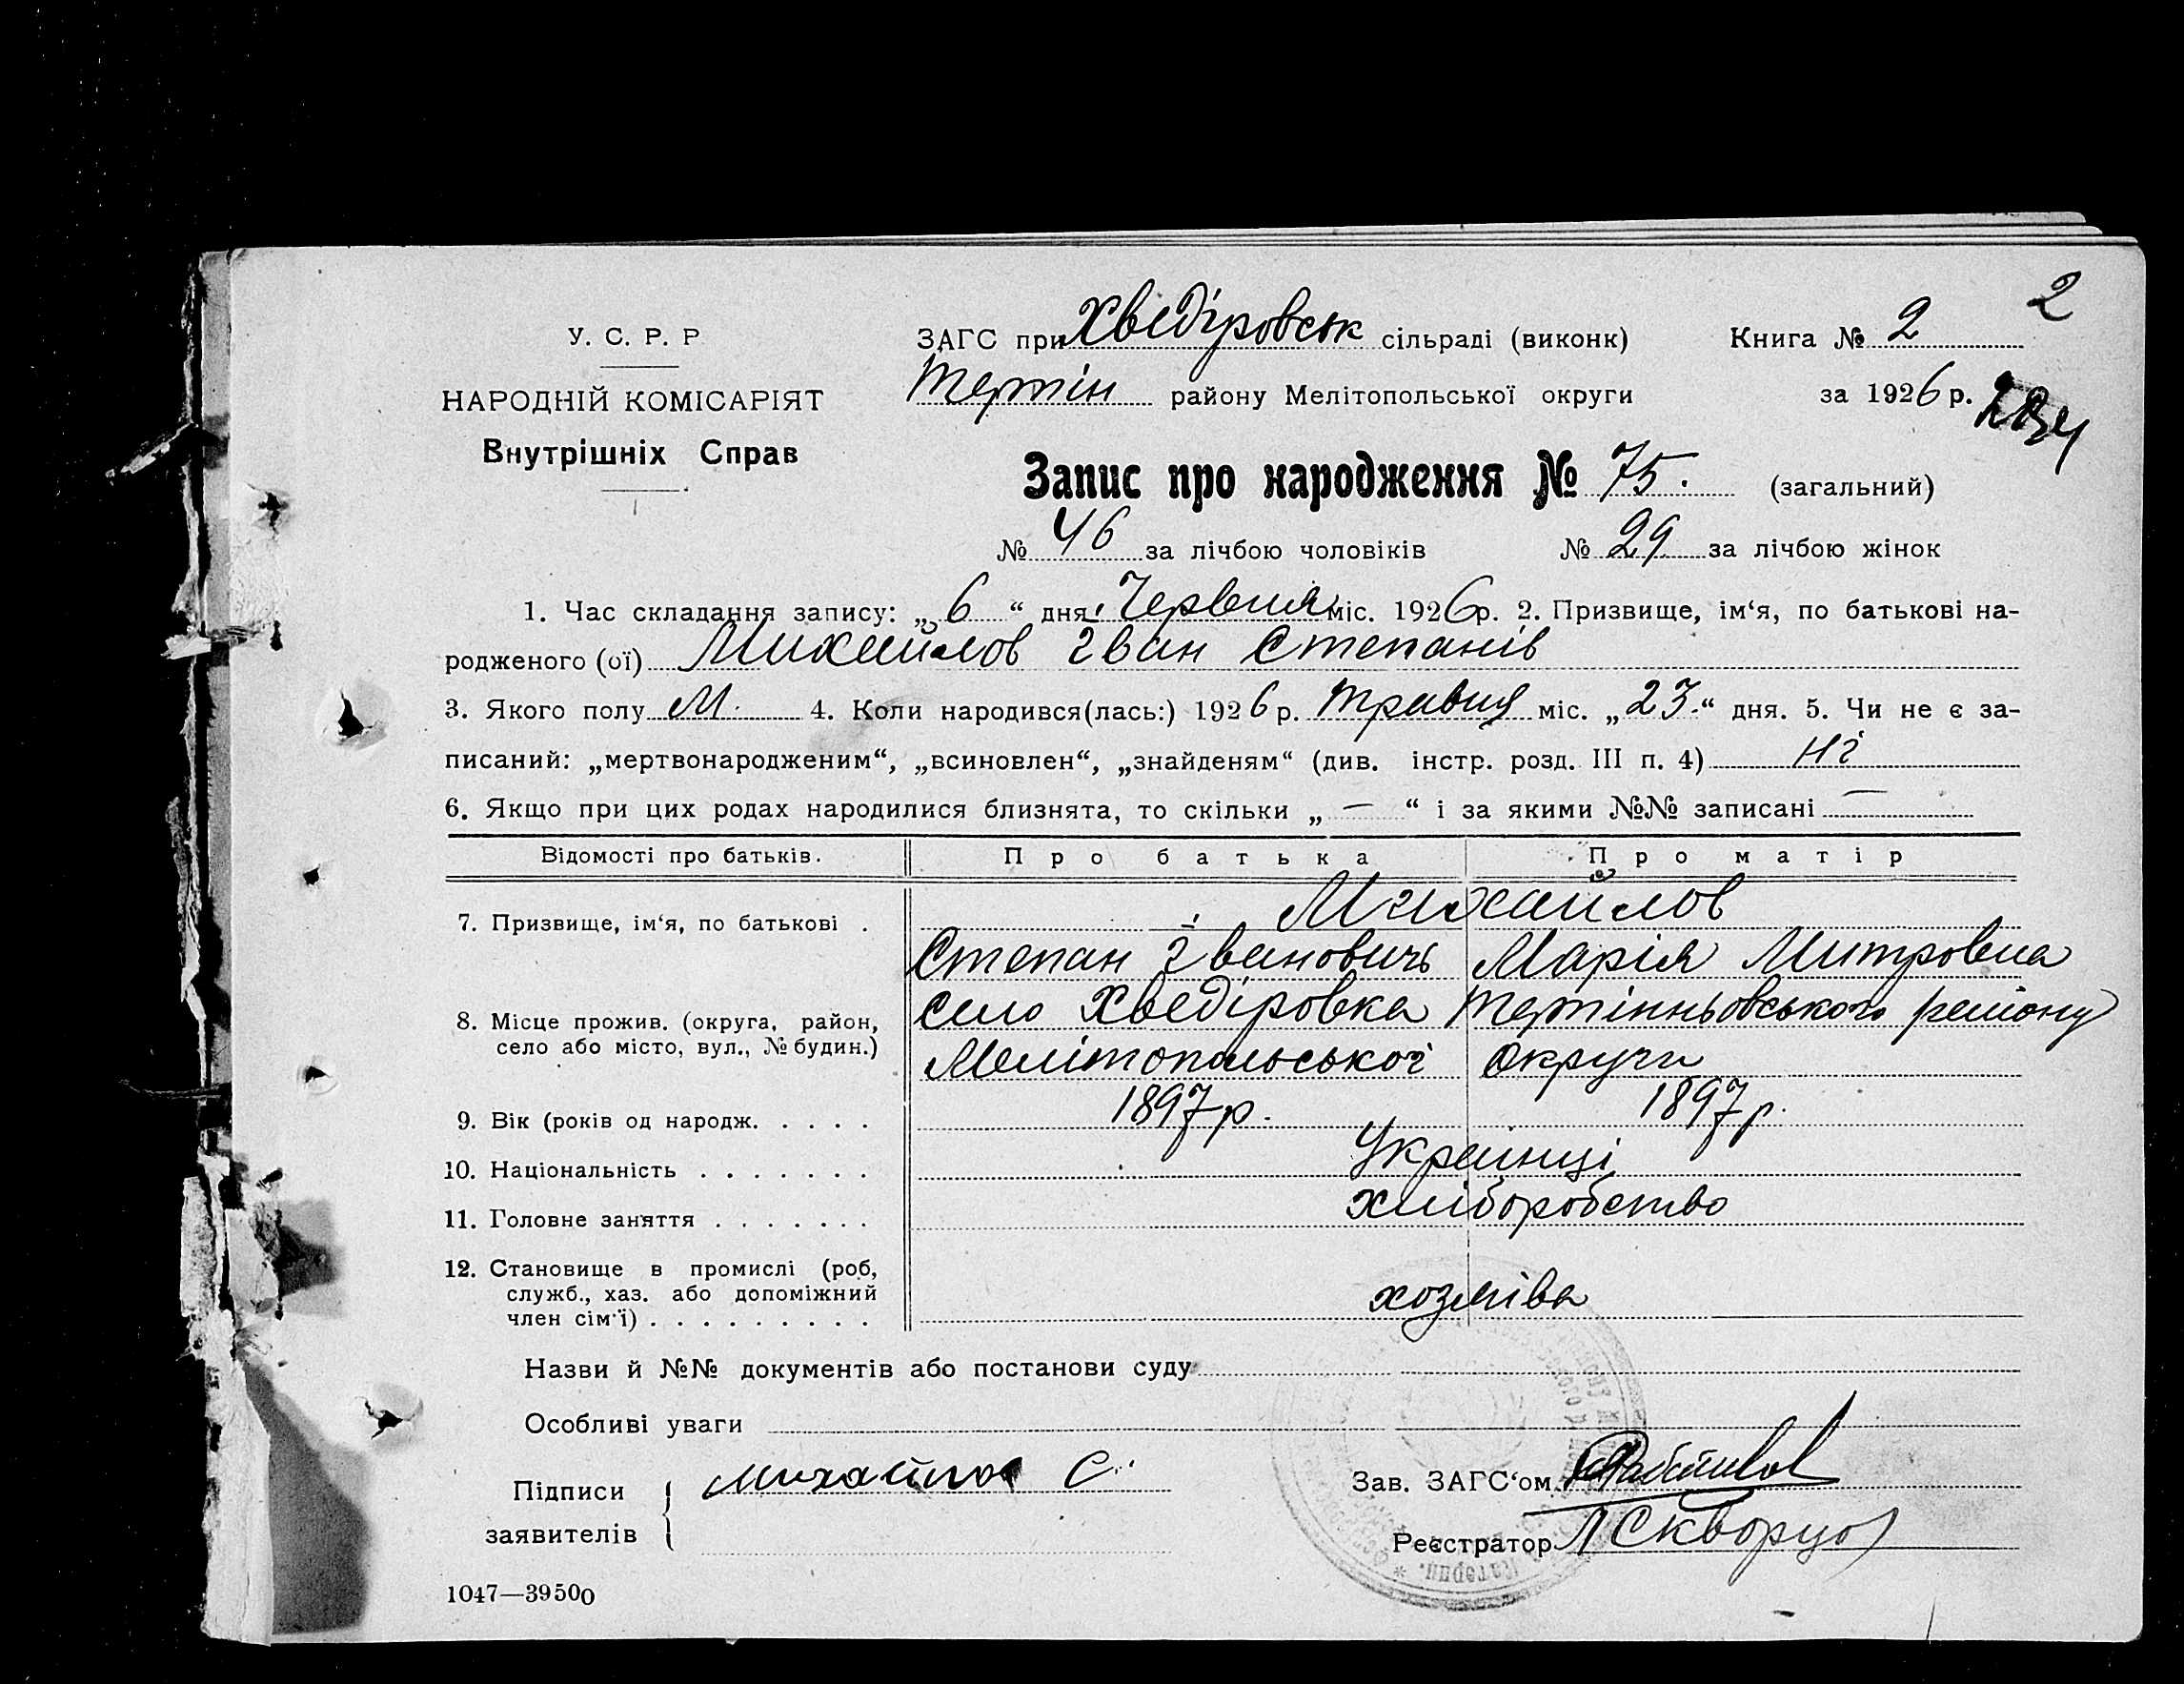 2
У. С. Р. Р
ЗАГС при Хведіровськ сільраді (виконк) Книга № 2
НАРОДНІЙ КОМІСАРІЯТ
Тертін району Мелітопольської округи за 1926 р.
Внутрішніх Справ
Запис про народження № 75. (загальний)
№ 46 за лічбою чоловіків № 29 за лічбою жінок
1. Час складання запису: „6“ дня Червня міс. 1926 р. 2. Призвище, ім‘я, по батькові на-
родженого (ої) Михайлов Іван Степанів
3. Якого полу М. 4. Коли народився(лась:) 1926 р. травня міс. „23“ дня. 5. Чи не є за-
писаний: „мертвонародженим“, „всиновлен“, „знайденям“ (див. інстр. розд. III п. 4) ні
6. Якщо при цих родах народилися близнята, то скільки „ — “ і за якими №№ записані —
Відомості про батьків. Про батька Про матір
7. Призвище, ім‘я, по батькові . Михайлов
Степан Івановичь Марія Митровна
8. Місце прожив. (округа, район, село Хведіровка Тертінньовського району
село або місто, вул., № будин.) Мелітопольської округи
9. Вік (років од народж. . . . . 1897 р. 1897 р.
10. Національність . . . . . . . Українці
11. Головне заняття . . . . . . . хліборобство
12. Становище в промислі (роб,
служб., хаз. або допоміжний хозяїва
член сім‘ї) . . . . . . . . .
Назви й №№ документів або постанови суду
Особливі уваги
Підписи Михайлов С. Зав. ЗАГС‘ом
заявителів Реєстратор Л Скворцов
1047—39500